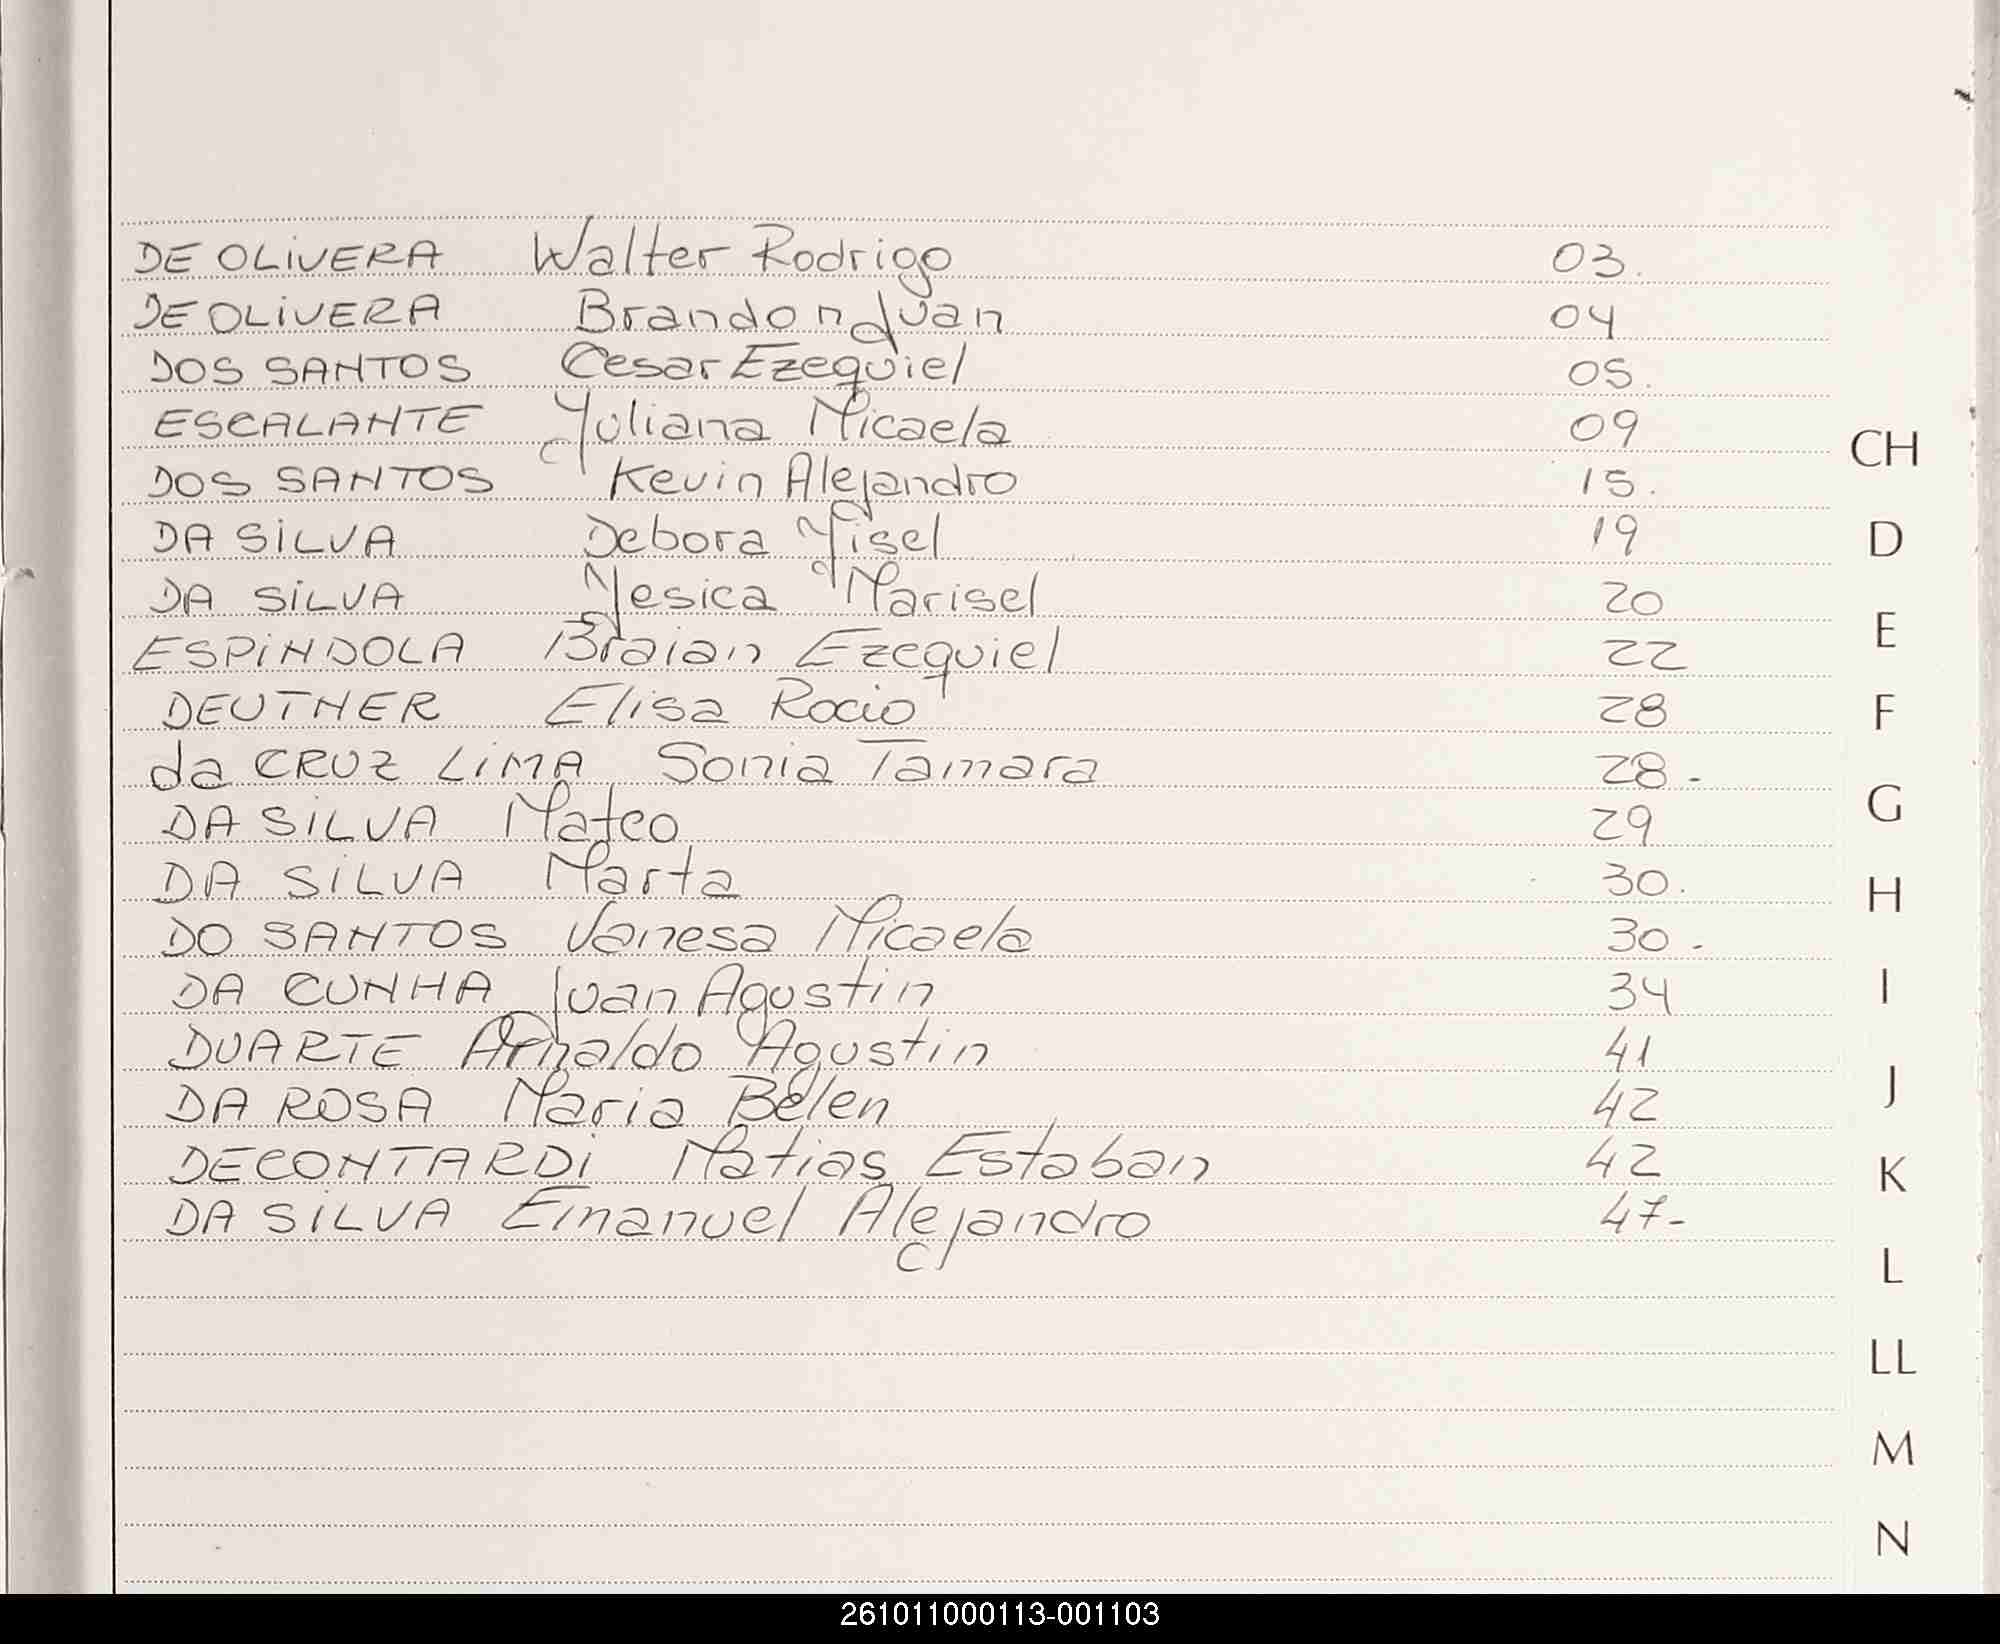 DE OLIVERA Walter Rodrigo 03.
DE OLIVERA Brandon Juan 04
DOS SANTOS Cesar Ezequiel 05.
ESCALANTE Yuliana Micaela 09
DOS SANTOS Kevin Alejandro 15.
DA SILVA Debora Yisel 19
DA SILVA Yesica Marisel 20
ESPINDOLA Braian Ezequiel 22
DEUTNER Elisa Rocio 28
da CRUZ LIMA Sonia Tamara 28.
DA SILVA Mateo 29
DA SILVA Marta 30.
DO SANTOS Vanesa Micaela 30.
DA CUNHA Juan Agustin 34
DUARTE Arnaldo Agustin 41
DA ROSA Maria Belen 42
DECONTARDI Matias Estaban 42
DA SILVA Emanuel Alejandro 47-
CH
D
E
F
G
H
I
J
K
L
LL
M
N
261011000113-001103